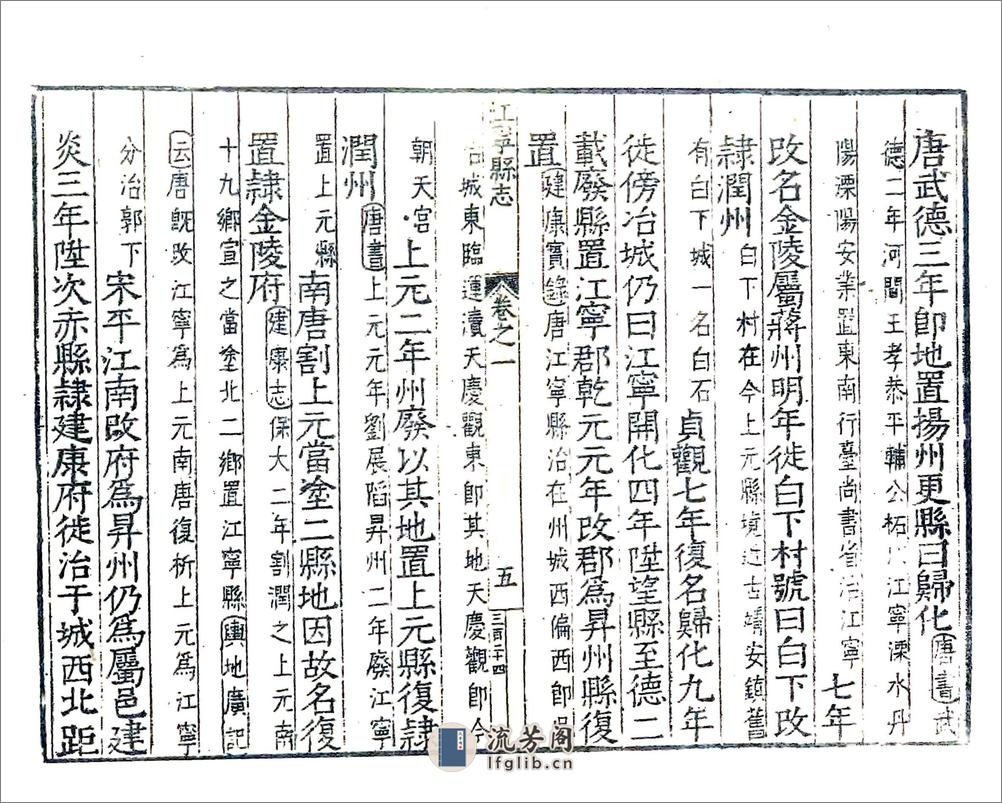 唐武德三年卽地置揚州更縣曰歸化唐書武
德二年河間王孝恭平輔公柘以江寧溧水丹
陽溧陽安業置東南行臺尚書省治江寧 七年
改名金陵屬蔣州明年徙白下村號曰白下改
隷潤州白下村在今上元縣境近古靖安鎮舊
有白下城一名白石 貞觀七年復名歸化九年
徙傍冶城仍曰江寧開化四年陞望縣至德二
載廢縣置江寧郡乾元元年改郡爲昇州縣復
置建康實錄唐江寧縣治在州城西偏西卽
江寧縣志 卷之一 五 三百二十四
冶城東臨運瀆天慶觀東卽其地天慶觀卽今
朝天宫 上元二年州廢以其地置上元縣復隷
潤州唐書上元元年劉展䧟昇州二年廢江寧
置上元縣 南唐割上元當塗二縣地因故名復
置隷金陵府建康志保大二年割潤之上元南
十九鄉宣之當塗北二鄉置江寧縣輿地廣記
云唐旣改江寧爲上元南唐復析上元爲江寧
分治郭下 宋平江南改府爲昇州仍爲屬邑建
炎三年陞次赤縣隷建康府徙治于城西北距
流芳阁
lfglib.cn